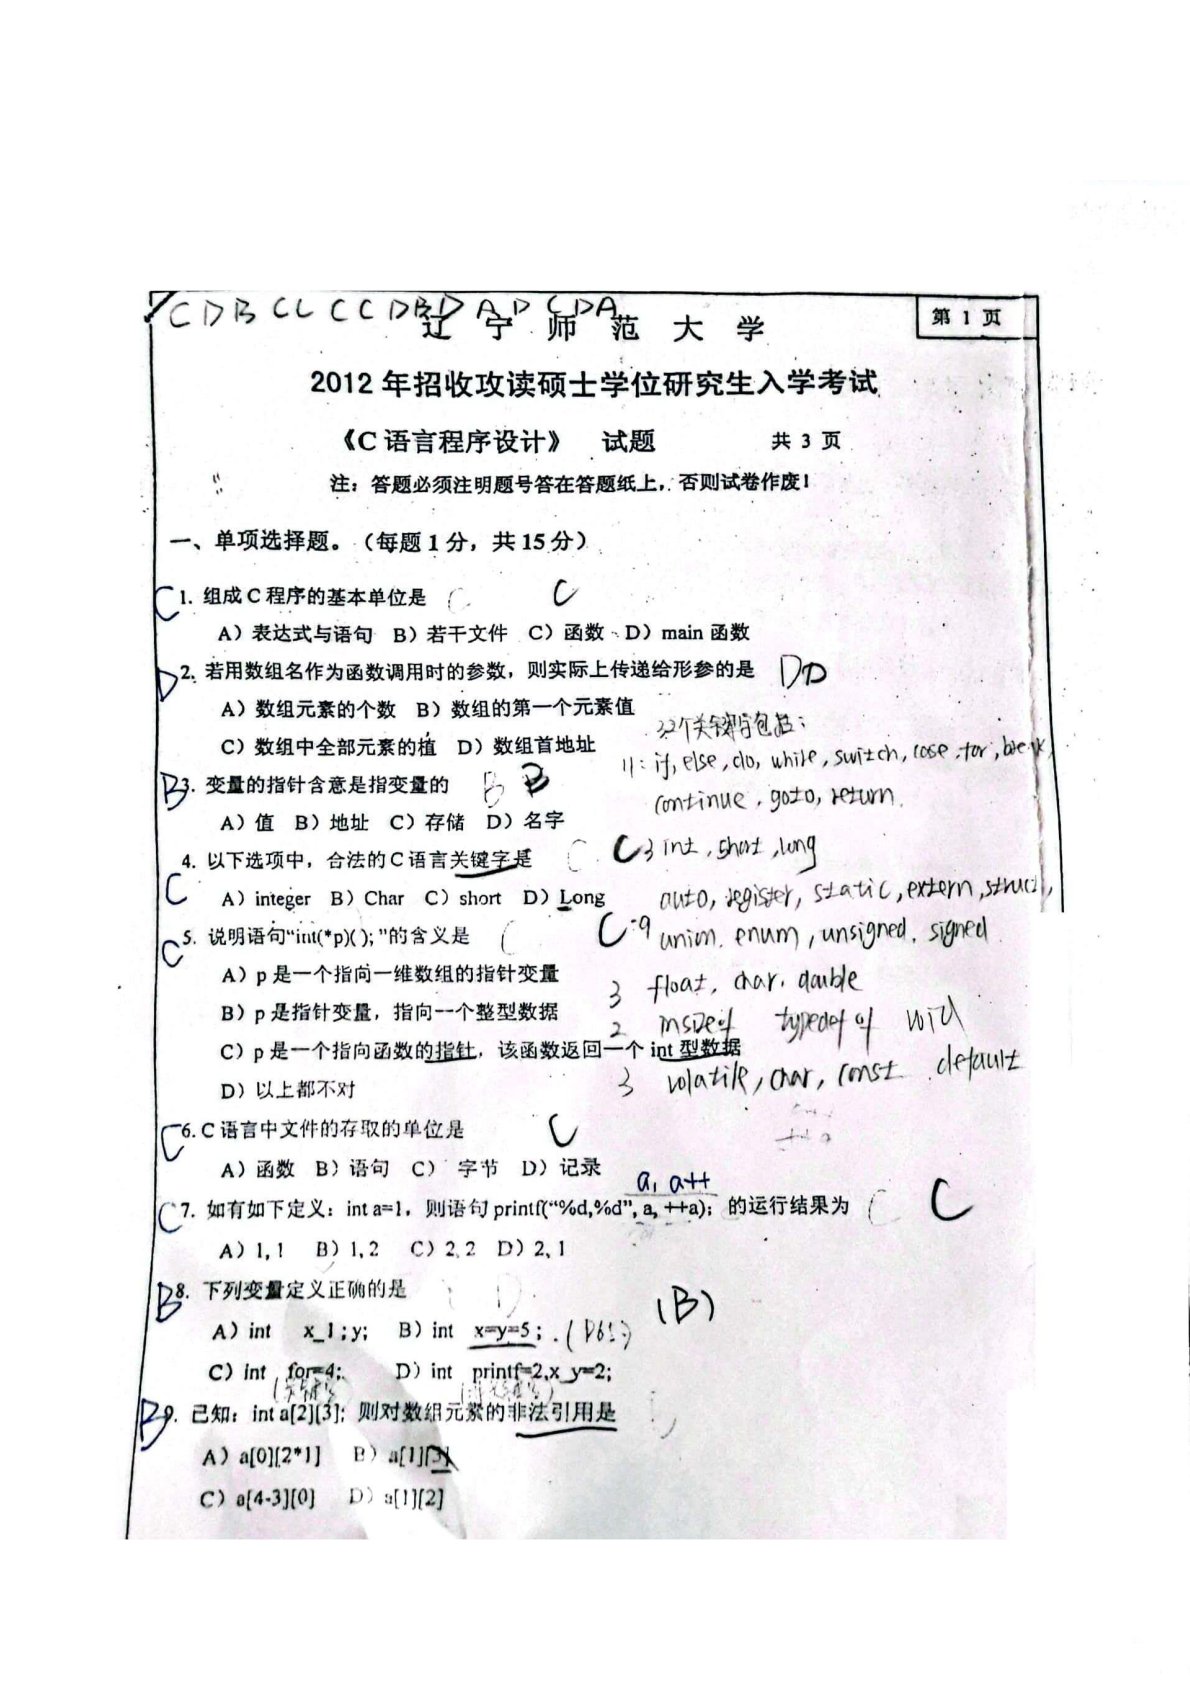 C D B C C C C D B D A D C D A
辽宁师范大学
第 1 页
2012 年招收攻读硕士学位研究生入学考试
《C 语言程序设计》 试题 共 3 页
注：答题必须注明题号答在答题纸上，否则试卷作废！
一、单项选择题。（每题 1 分，共 15 分）
C 1. 组成 C 程序的基本单位是 C C
A）表达式与语句 B）若干文件 C）函数 D）main 函数
D 2. 若用数组名作为函数调用时的参数，则实际上传递给形参的是 D D
A）数组元素的个数 B）数组的第一个元素值
32个关键字包括：
C）数组中全部元素的值 D）数组首地址
11: if, else, do, while, switch, case, for, break,
B 3. 变量的指针含意是指变量的 B B
continue, goto, return.
A）值 B）地址 C）存储 D）名字
C 4. 以下选项中，合法的 C 语言关键字是 C C
3 int, short, long
A）integer B）Char C）short D）Long
auto, register, static, extern, struct,
C 5. 说明语句“int(*p)( ); ”的含义是 C C
9 union. enum, unsigned. signed
A）p 是一个指向一维数组的指针变量
3 float, char. double
B）p 是指针变量，指向一个整型数据
2 typedef of void
C）p 是一个指向函数的指针，该函数返回一个 int 型数据
3 volatile, char, const default
D）以上都不对
C 6. C 语言中文件的存取的单位是 C
A）函数 B）语句 C） 字节 D）记录
a, a++
C 7. 如有如下定义：int a=1，则语句 printf(“%d,%d”, a, ++a); 的运行结果为 C C
A）1, 1 B）1, 2 C）2, 2 D）2, 1
B 8. 下列变量定义正确的是 D (B)
A）int x_1 ; y; B）int x=y=5 ; . (P65)
C）int for=4; D）int printf=2,x_y=2;
B 9. 已知：int a[2][3]; 则对数组元素的非法引用是
A）a[0][2*1] B）a[1][3]
C）a[4-3][0] D）a[1][2]